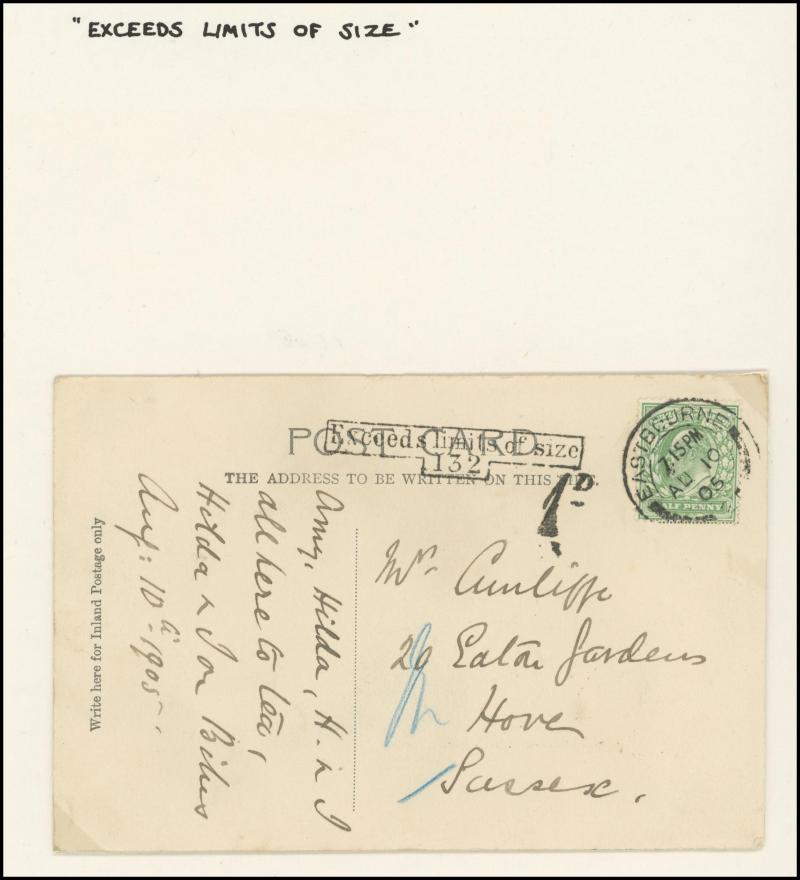 "EXCEEDS LIMITS OF SIZE"
POST CARD
Exceeds limits of size
132
THE ADDRESS TO BE WRITTEN ON THIS
1D
EASTBOURNE
7.15PM
AU 10
05
HALF PENNY
Write here for Inland Postage only
Amy, Hilda, H. & I
all here to tea,
Hilda & I on Bikes
Aug: 10th 1905.
Cunliffe
29 Eaton Gardens
Hove
Sussex.